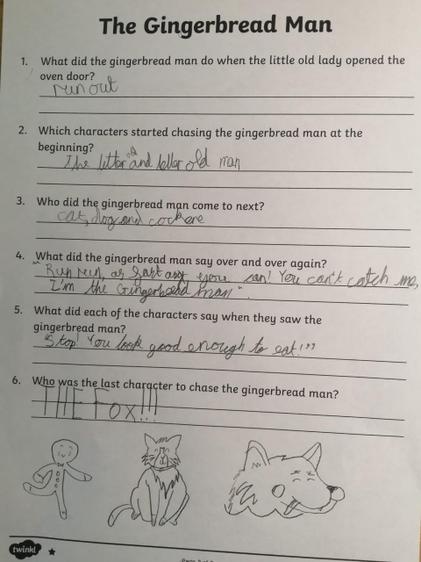 The Gingerbread Man
1. What did the gingerbread man do when the little old lady opened the
oven door?
run out
2. Which characters started chasing the gingerbread man at the
beginning?
The letter old and letter old man
3. Who did the gingerbread man come to next?
cat, dog and
4. What did the gingerbread man say over and over again?
"Run run, as fast as you can! You can't catch me,
I'm the Gingerbread man".
5. What did each of the characters say when they saw the
gingerbread man?
Stop! You look good enough to eat!"
6. Who was the last character to chase the gingerbread man?
THE Fox!!!
twinkl